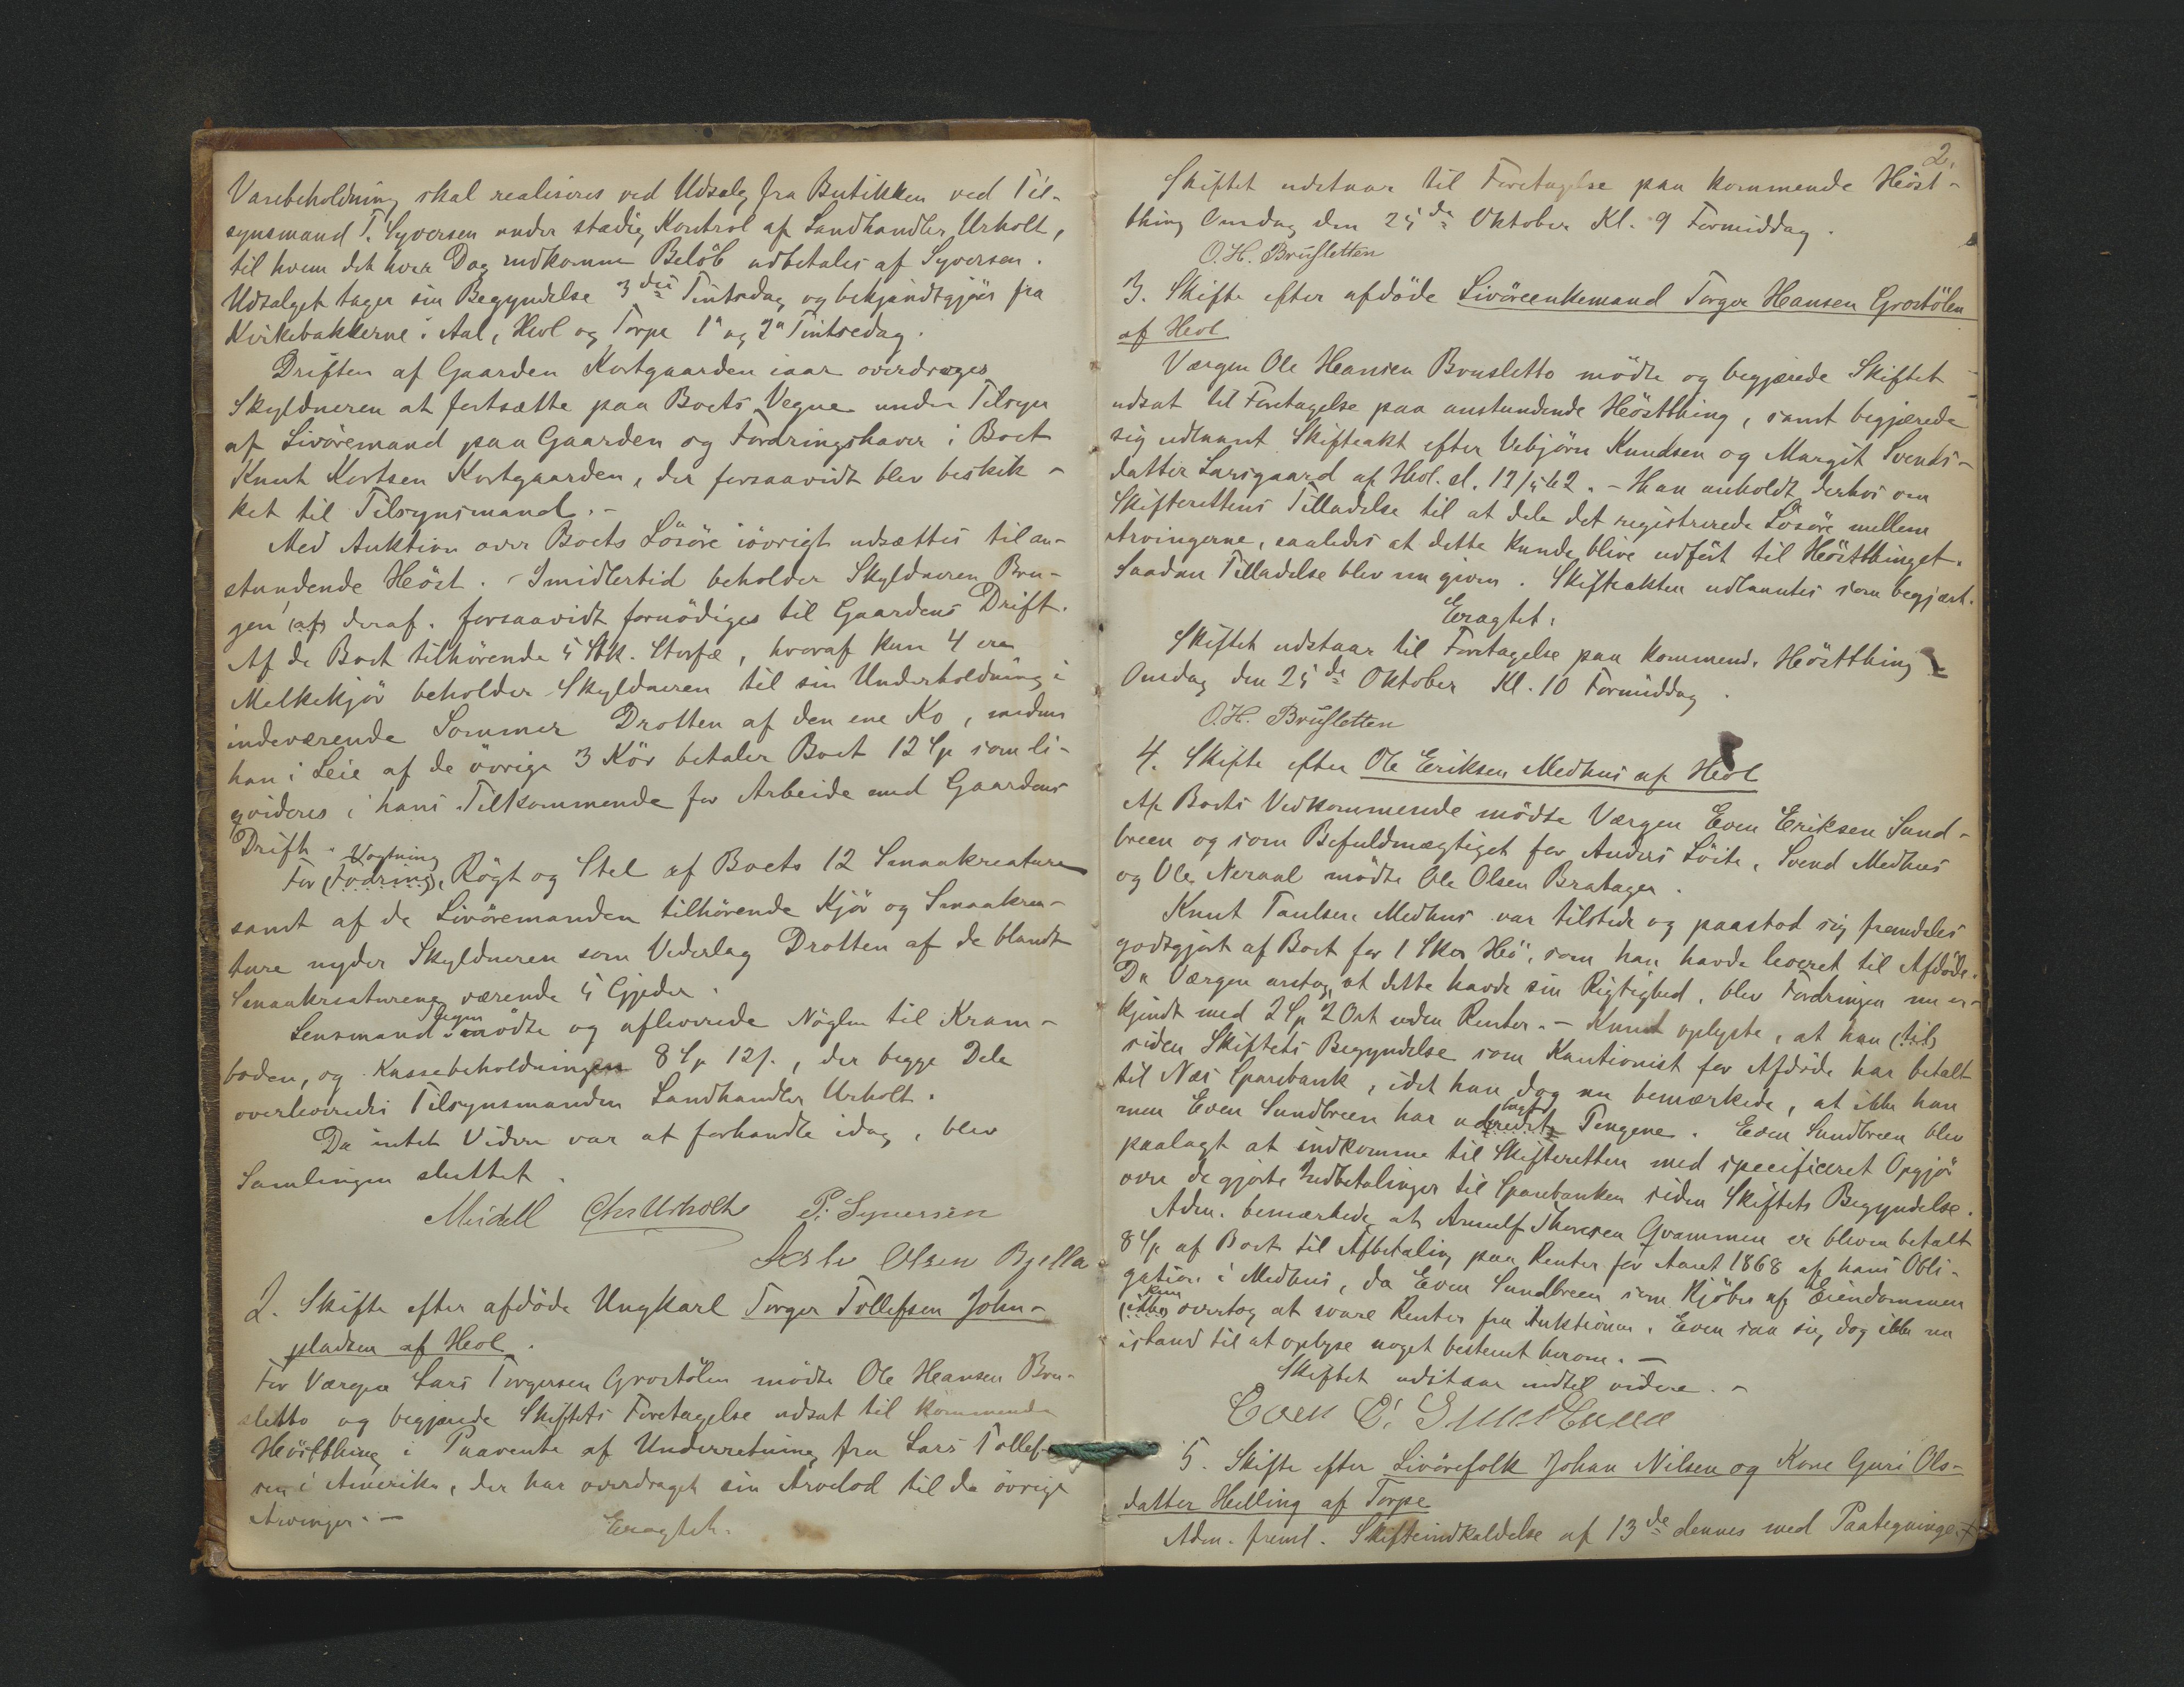 Varebeholdning skal realiseres ved Udsalg fra Butikken ved Til-
synsmand T. Syversen under stadig Kontrol af Landhandler Urholt,
til hvem det hver Dag indkomne Belöb udbetales af Syversen.
Udsalget tager sin Begyndelse 3die Pintsdag og bekjendtgjöres fra
Kirkebakkerne i Aal, Hol og Torpe 1ste og 2den Pintsedag.
Driften af Gaarden Kortgaarden iaar overdrages
Skyldneren at fortsætte paa Boets Vegne under Tilsyn
af Livöremand paa Gaarden og Fordringshaver i Boet
Knut Kortsen Kortgaarden, der forsaavidt blev beskik-
ket til Tilsynsmand. -
Med Auktion over Boets Lösöre iövrigt udsættes til an-
stundende Höst. - Imidlertid beholder Skyldneren Bru-
gen (af) deraf, forsaavidt fornödiges til Gaardens Drift.
Af de Boet tilhörende 5 Stk. Storfæ, hvoraf kun 4 ere
Melkekjör beholder Skyldneren til sin Underholdning i
indeværende Sommer Drotten af den ene Ko, medens
han i Leie af de övrige 3 Kör betaler Boet 12 Sp som li-
qvideres i hans Tilkommende for Arbeide med Gaardens
Drift.
For (Fodring) Vogtning, Rögt og Stel af Boets 12 Smaakreature
samt af de Livöremanden tilhörende Kjör og Smaakrea-
ture nyder Skyldneren som Vederlag Drotten af de blandt
Smaakreaturene værende 5 Gjeder.
Lensmand mödte og afleverede Nöglen til Kram-
boden, og Kassebeholdningen 8 Sp 12 s., der begge Dele
overleveredes Tilsynsmanden Landhandler Urholt.
Da intet Videre var at forhandle idag, blev
Samlingen sluttet.
Meidell Chr Urholt P. Syversen
Asle Olsen Bjella
2. Skifte efter afdöde Ungkarl Torger Tollefsen John-
pladsen af Hol.
For Værgen Lars Torgersen Grostölen mödte Ole Hansen Bru-
sletto og begjærede Skiftets Foretagelse udsat til kommende
Höstthing i Paavente af Underretning fra Lars Tollef-
sen i Amerika, der har overdraget sin Arvelod til de övrige
Arvinger. -
Eragtet.
2.
Skiftet udstaar til Foretagelse paa kommende Höst-
thing Onsdag den 25de Oktober Kl. 9 Formiddag.
O.H. Brusletten
3. Skifte efter afdöde Livöreenkemand Torger Hansen Grostölen
af Hol
Værgen Ole Hansen Brusletto mödte og begjærede Skiftet
udsat til Foretagelse paa anstundende Höstthing, samt begjærede
sig udlaant Skifteakt efter Vebjörn Knudsen og Margit Svends-
datter Larsgaard af Hol. sl. 12/5 62. - Han anholdt derhos om
Skifterettens Tilladelse til at dele det registrerede Lösöre mellem
Arvingerne, saaledes at dette kunde blive udfört til Höstthinget.
Saadan Tilladelse blev nu given. Skifteakten udlaantes som begjært.
Eragtet:
Skiftet udstaar til Foretagelse paa kommende Höstthing
Onsdag den 25de Oktober Kl. 10 Formiddag.
O.H. Brusletten
4. Skifte efter Ole Eriksen Medhus af Hol
Af Boets Vedkommende mödte Værgen Even Eriksen Sund-
breen og som Befuldmægtiget for Anders Löite, Svend Medhus
og Ole Neraal mödte Ole Olsen Bratager.
Knut Paulsen Medhus var tilstede og paastod sig fremdeles
godtgjort af Boet for 1 Skor Hö, som han havde leveret til Afdöde.
Da Værgen antog, at dette havde sin Rigtighed, blev Fordringen nu er-
kjendt med 2 Sp 2 Ort uden Renter. - Knut oplyste, at han (til)
siden Skiftets Begyndelse som Kautionist for Afdöde har betalt
til Næs Sparebank, idet han dog nu bemærkede, at ikke han
men Even Sundbreen har udredet Pengene. Even Sundbreen blev
paalagt at indkomme til Skifteretten med specificeret Opgjör
over de gjorte Indbetalinger til Sparebanken siden Skiftets Begyndelse.
Adm. bemærkede, at Arnulf Thoresen Qvammen er bleven betalt
8 Sp af Boet til Afbetaling paa Renter for Aaret 1868 af hans Obli-
gation i Medhus, da Even Sundbreen som Kjöber af Eiendommen
(ikke) kun overtog at svare Renter fra Auktionen. Even saa sig dog ikke nu
istand til at oplyse noget bestemt herom. -
Skiftet udstaar indtil videre. -
Even E. Sundbreen
5. Skifte efter Livörefolk Johan Nilsen og Kone Guri Ols-
datter Helling af Torpe
Adm. freml. Skifteindkaldelse af 13de dennes med Paategninger